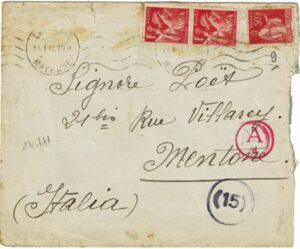 MAYENNE
Signore Poët
21 bis Rue Villarey
Mentone
(Italia)
A
(15)